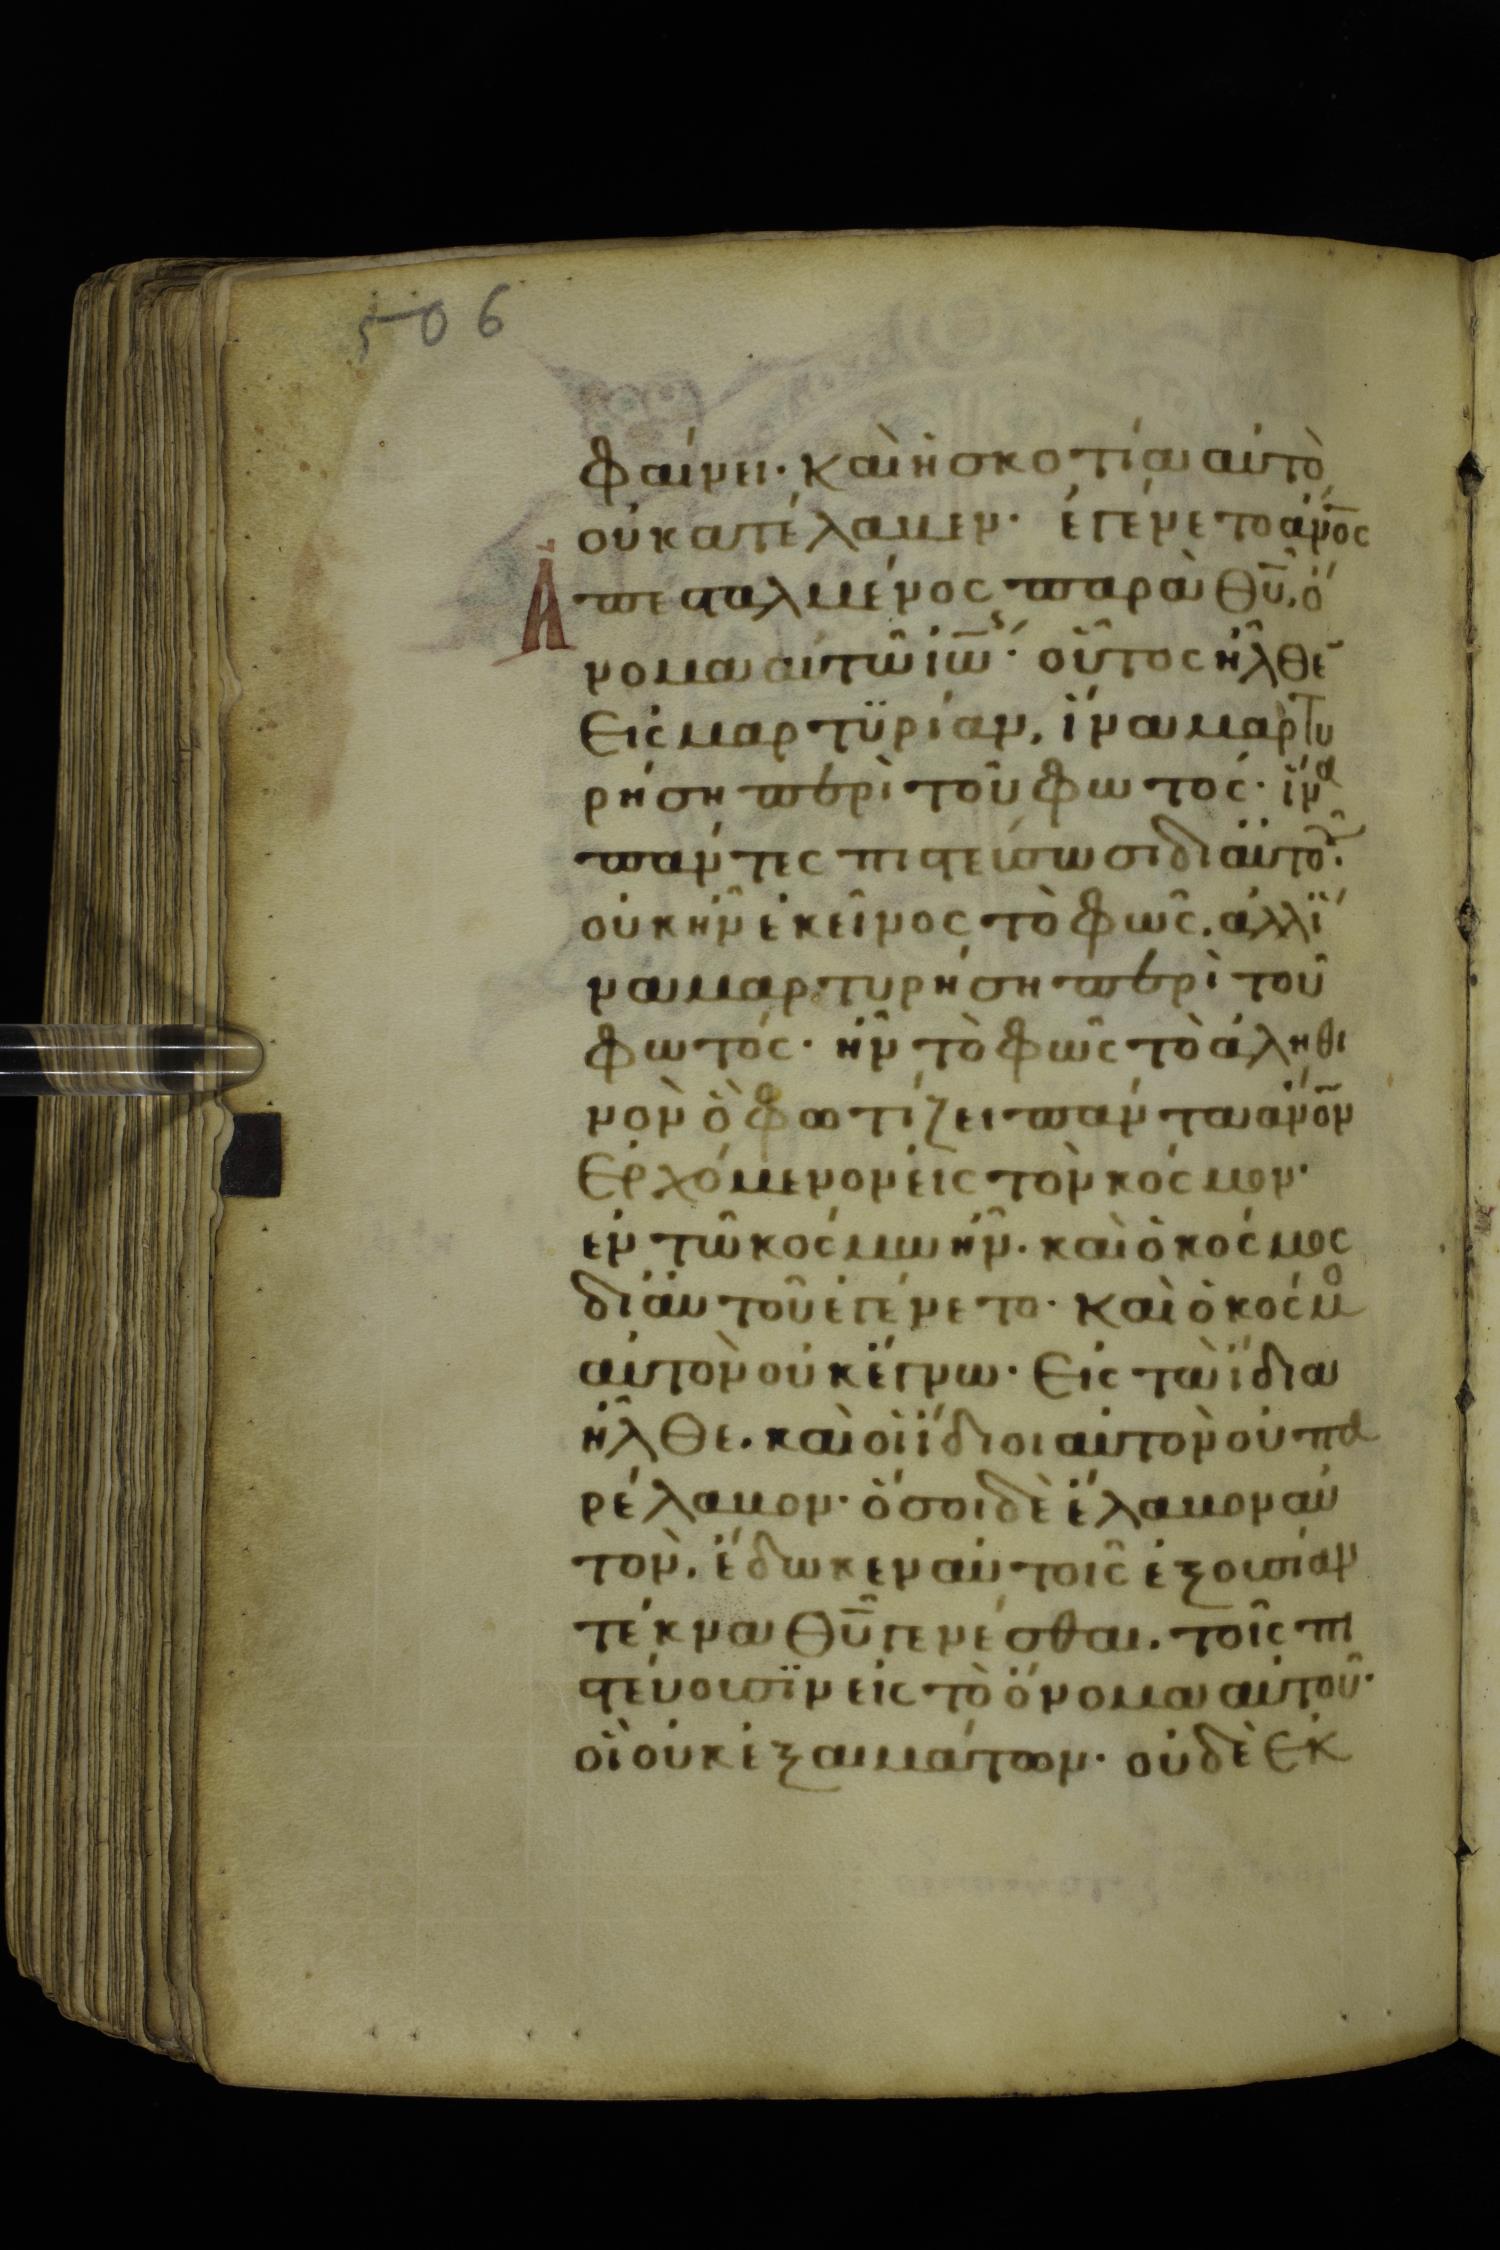 506
φαίνει· καὶ ἡ σκοτία αὐτὸ
οὐ κατέλαβεν· ἐγένετο ἄν̅ο̅ς
Ἀπεσταλμένος παρὰ θ̅υ̅, ὄ
νομα αὐτῶ ἰω̅ς· οὗτος ἦλθε
εἰς μαρτϋρίαν, ἵνα μαρτυ
ρήση περὶ τοῦ φωτός· ἵνα
πάντες πιστεύσωσι δι αὐτοῦ·
οὐκ ἦν ἐκεῖνος τὸ φῶς, ἀλλ ἵ
να μαρτυρήση περὶ τοῦ
φωτός· ἦν τὸ φῶς τὸ ἀληθι
νὸν ὃ φωτίζει πάντα ἄν̅ο̅ν
ἐρχόμενον εἰς τὸν κόσμον·
ἐν τῶ κόσμω ἦν· καὶ ὁ κόσμος
δι αὐτοῦ ἐγένετο· καὶ ὁ κόσμο
αὐτὸν οὐκ ἔγνω· εἰς τὰ ἴδια
ἦλθε· καὶ οἱ ἴδιοι αὐτὸν οὐ πα
ρέλαβον· ὅσοι δὲ ἔλαβον αὐ
τὸν, ἔδωκεν αὐτοῖς ἐξουσίαν
τέκνα θ̅υ̅ γενέσθαι, τοῖς πι
στεύουσϊν εἰς τὸ ὄνομα αὐτοῦ·
οἳ οὐκ ἐξ αιμάτων· οὐδὲ ἐκ